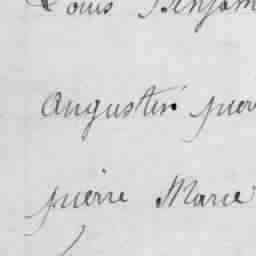 Louis Benjam
augustin pier
pierre Marie